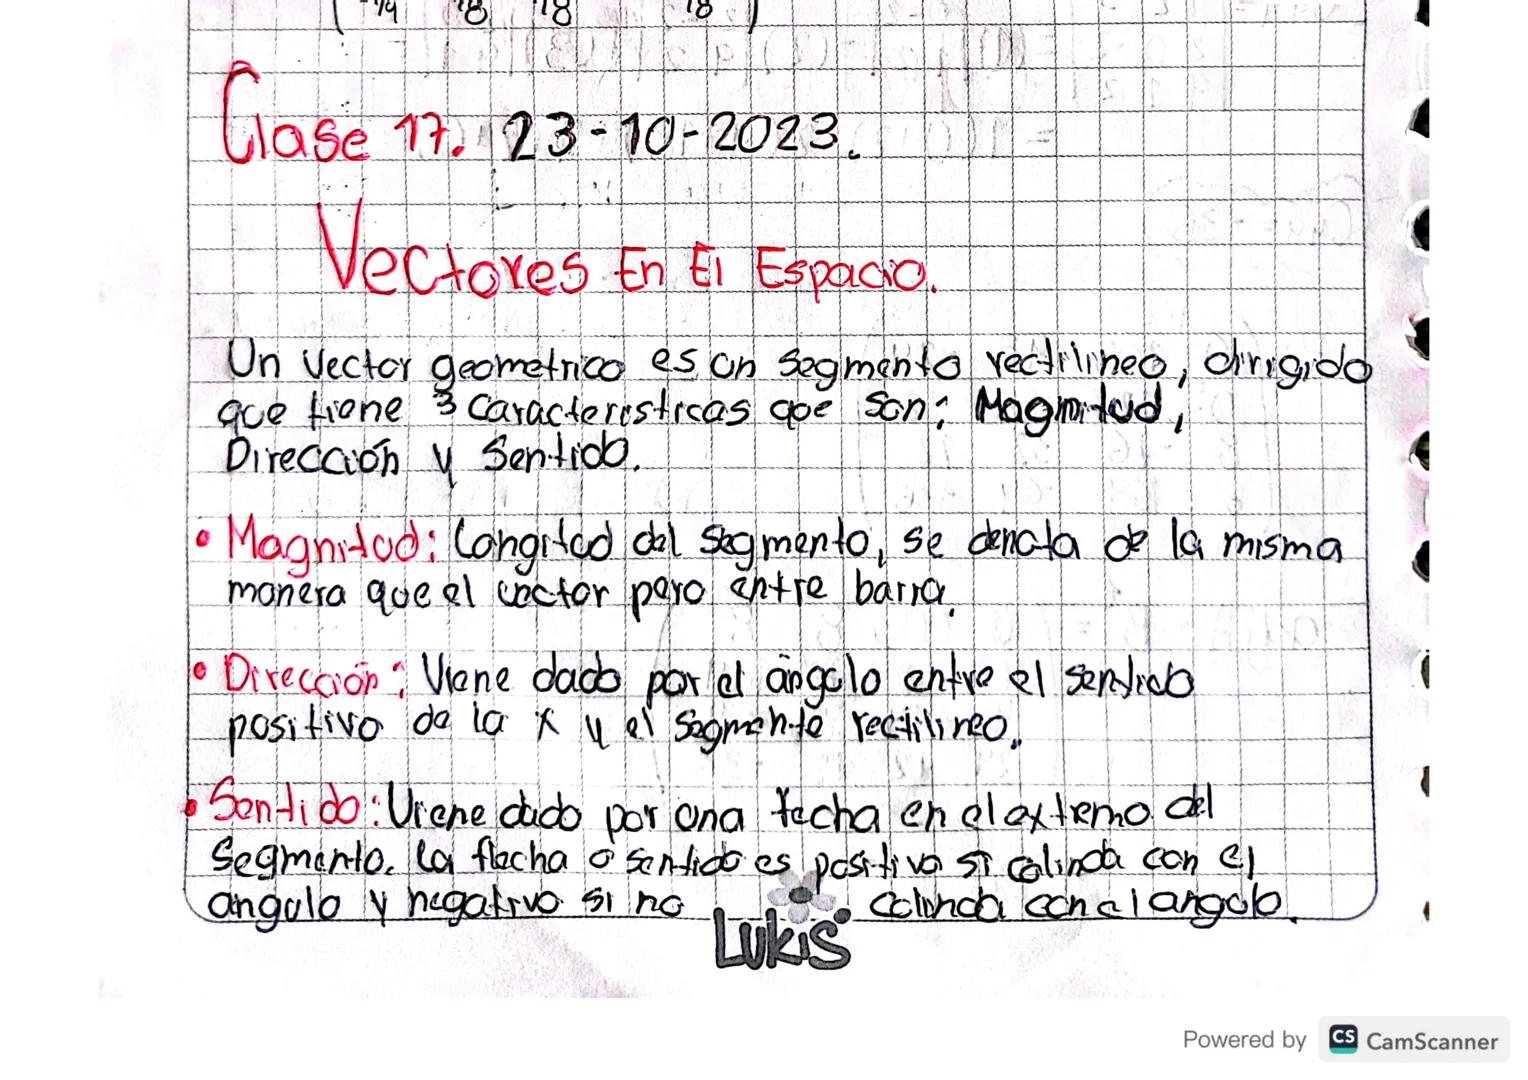 -14 18 18 18
Clase 17. 23-10-2023.
Vectores En El Espacio.
Un vector geometrico es un segmento rectilineo, dirigido
que tiene 3 caracteristicas que son: Magnitud,
Dirección y Sentido.
• Magnitud: Longitud del segmento, se denota de la misma
manera que el vector pero entre barra.
• Dirección: Viene dado por el ángulo entre el sentido
positivo de la x y el segmento rectilineo.
• Sentido: Viene dado por una fecha en el extremo del
Segmento. La flecha o sentido es positivo si colinda con el
angulo y negativo si no colinda con el angulo.
LUKIS
Powered by CS CamScanner